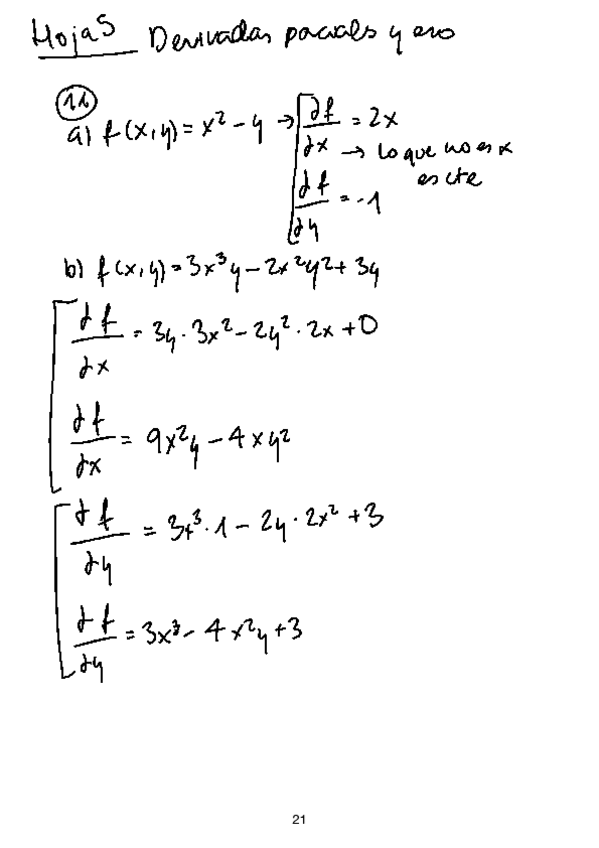 Hoja 5 Derivadas parciales y ero
12
a) f(x,y) = x² - y → ∂f/∂x = 2x
→ lo que no es x es cte
∂f/∂y = -1
b) f(x,y) = 3x³y - 2x²y² + 3y
∂f/∂x = 3y · 3x² - 2y² · 2x + 0
∂f/∂x = 9x²y - 4xy²
∂f/∂y = 3x³ · 1 - 2y · 2x² + 3
∂f/∂y = 3x³ - 4x²y + 3
21